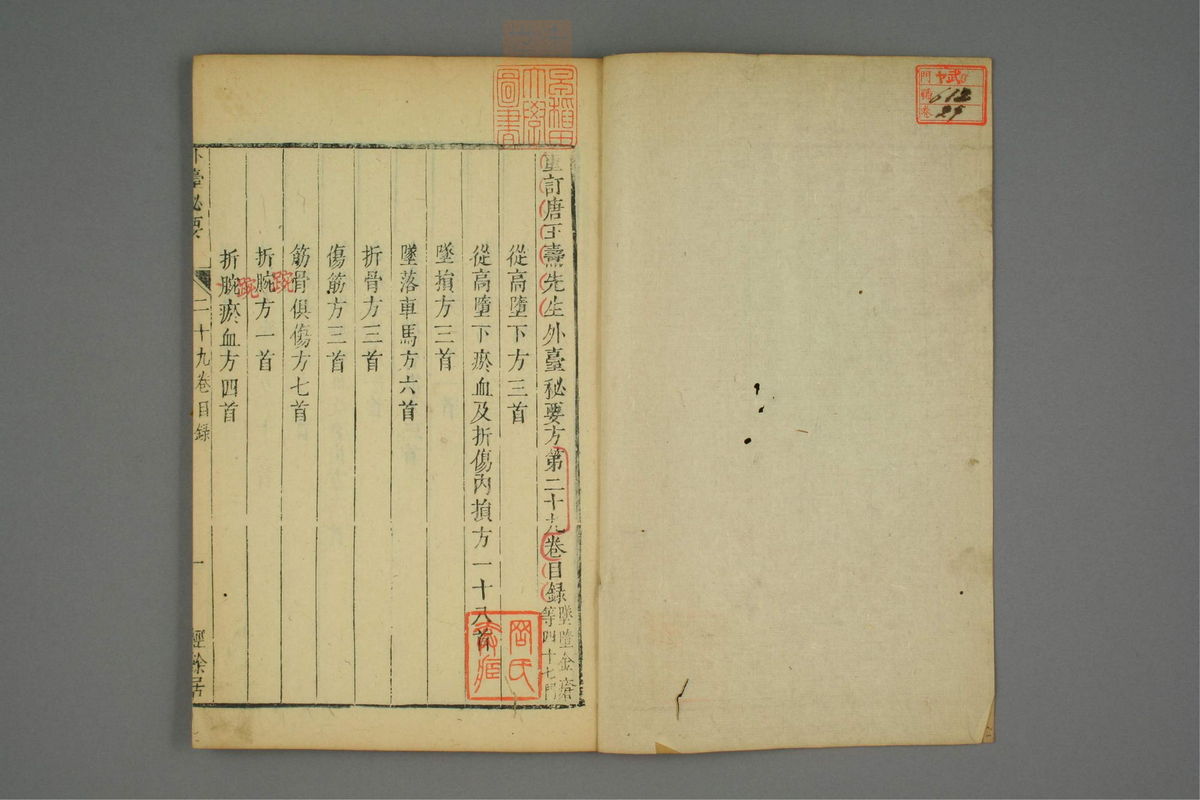 門 ヤ武9
號 612
卷 29
早稲田大學圖書
重訂唐王燾先生外臺秘要方第二十九卷目錄 墜墮金瘡等四十七門
從高墮下方三首
從高墮下瘀血及折傷內損方一十八首
墜損方三首
墜落車馬方六首
折骨方三首
傷筋方三首
筋骨俱傷方七首
折腕方一首
踠
折腕瘀血方四首
踠
外臺秘要 二十九卷目錄 一 經餘居